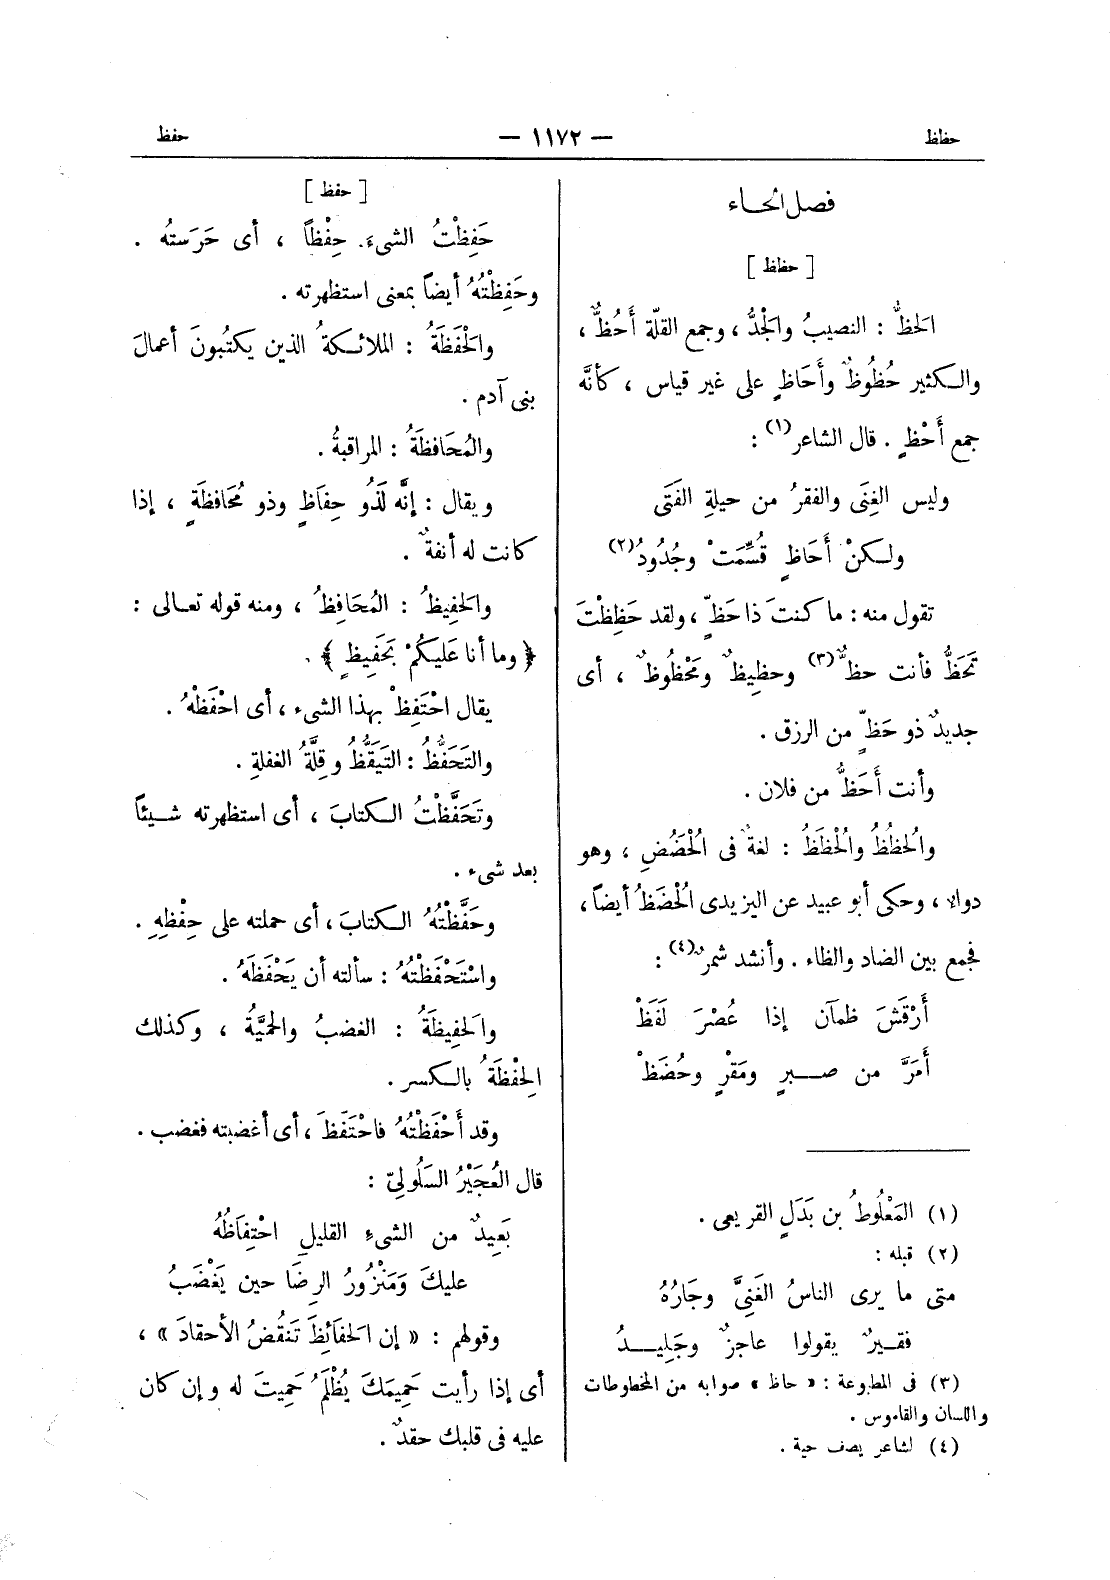 حظظ
— ١١٧٢ —
حفظ
فصل الحاء
[ حظظ ]
الحظُّ : النصيبُ والجَدُّ ، وجمع القلّة أَحُظٌّ ،
والكثير حُظُوظٌ وأَحَاظٍ على غير قياس ، كأنّه
جمع أَحْظٍ . قال الشاعر(١) :
وليس الغِنَى والفقرُ من حيلةِ الفَتَى
ولكنْ أَحَاظٍ قُسِّمَتْ وجُدُودُ(٢)
تقول منه : ما كنتَ ذا حَظٍّ ، ولقد حَظِظْتَ
تَحَظُّ فأنت حظٌّ(٣) وحظِيظٌ ومَحْظُوظٌ ، أى
جديدٌ ذو حَظٍّ من الرزق .
وأنت أَحَظُّ من فلان .
والُحظُظُ والُحْظَظُ : لغةٌ فى الُحْضَضِ ، وهو
دواء ، وحكى أبو عبيد عن اليزيدى الُحْضَظُ أيضاً ،
فجمع بين الضاد والظاء . وأنشد شمرٌ(٤) :
أَرْقَشَ ظمآن إذا عُصْرَ لَفَظْ
أَمَرَّ من صبرٍ ومَقْرٍ وحُضَظْ
(١) المَعْلُوطُ بن بَدَلٍ القريعى .
(٢) قبله :
متى ما يرى الناسُ الغَنِىَّ وجَارُهُ
فقيرٌ يقولوا عاجزٌ وجَلِيدُ
(٣) فى المطبوعة : « حاظ » صوابه من المخطوطات
واللسان والقاموس .
(٤) لشاعر يصف حية .
[ حفظ ]
حَفِظْتُ الشىءَ حِفْظاً ، أى حَرَسته .
وحَفِظْتُهُ أيضاً بمعنى استظهرته .
والحَفَظَةُ : الملائكةُ الذين يكتُبونَ أعمالَ
بنى آدم .
والمُحَافظَةُ : المراقبةُ .
ويقال : إنَّه لَذُو حِفَاظٍ وذو مُحَافظَةٍ ، إذا
كانت له أنفةٌ .
والحَفِيظُ : المُحَافِظُ ، ومنه قوله تعالى :
﴿ وما أنا عَليكُمْ بحَفِيظٍ ﴾ .
يقال احْتَفِظْ بهذا الشىء ، أى احْفَظْهُ .
والتَحَفُّظُ : التَيَقُّظُ وقلَّةُ الغفلةِ .
وتَحَفَّظْتُ الكتابَ ، أى استظهرته شيئاً
بعد شىء .
وحَفَّظْتُهُ الكتابَ ، أى حملته على حِفْظِهِ .
واسْتَحْفَظْتُهُ : سألته أن يَحْفَظَهُ .
والحَفِيظَةُ : الغضبُ والحميَّةُ ، وكذلك
الحِفْظَةُ بالكسر .
وقد أَحْفَظْتُهُ فاحْتَفَظَ ، أى أغضبته فغضب .
قال العُجَيْرُ السَلُولىّ :
بَعِيدٌ من الشىءِ القليلِ احْتِفَاظُهُ
عليكَ وَمَنْزُورُ الرِضَا حين يَغْضَبُ
وقولهم : « إن الحَفَائِظَ تَنقُضُ الأحقادَ » ،
أى إذا رأيت حَمِيمَكَ يُظْلَمُ حَمِيتَ له وإن كان
عليه فى قلبك حقدٌ .